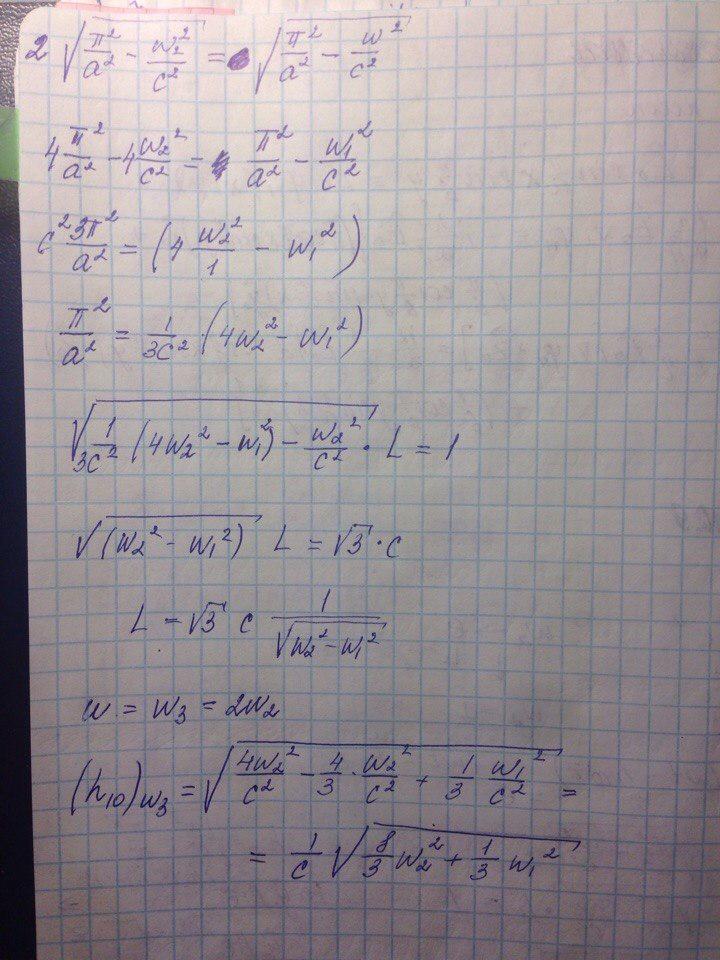 2 √(π²/a² - w₂²/c²) = √(π²/a² - w²/c²)
4 π²/a² - 4 w₂²/c² = π²/a² - w₁²/c²
c² 3π²/a² = (4 w₂²/1 - w₁²)
π²/a² = 1/3c² (4w₂² - w₁²)
√(1/3c² (4w₂² - w₁²) - w₂²/c²) · L = 1
√(w₂² - w₁²) L = √3 · c
L = √3 c 1/√(w₂² - w₁²)
w = w₃ = 2w₂
(h₁₀)w₃ = √(4w₂²/c² - 4/3 · w₂²/c² + 1/3 w₁²/c²) =
= 1/c √(8/3 w₂² + 1/3 w₁²)